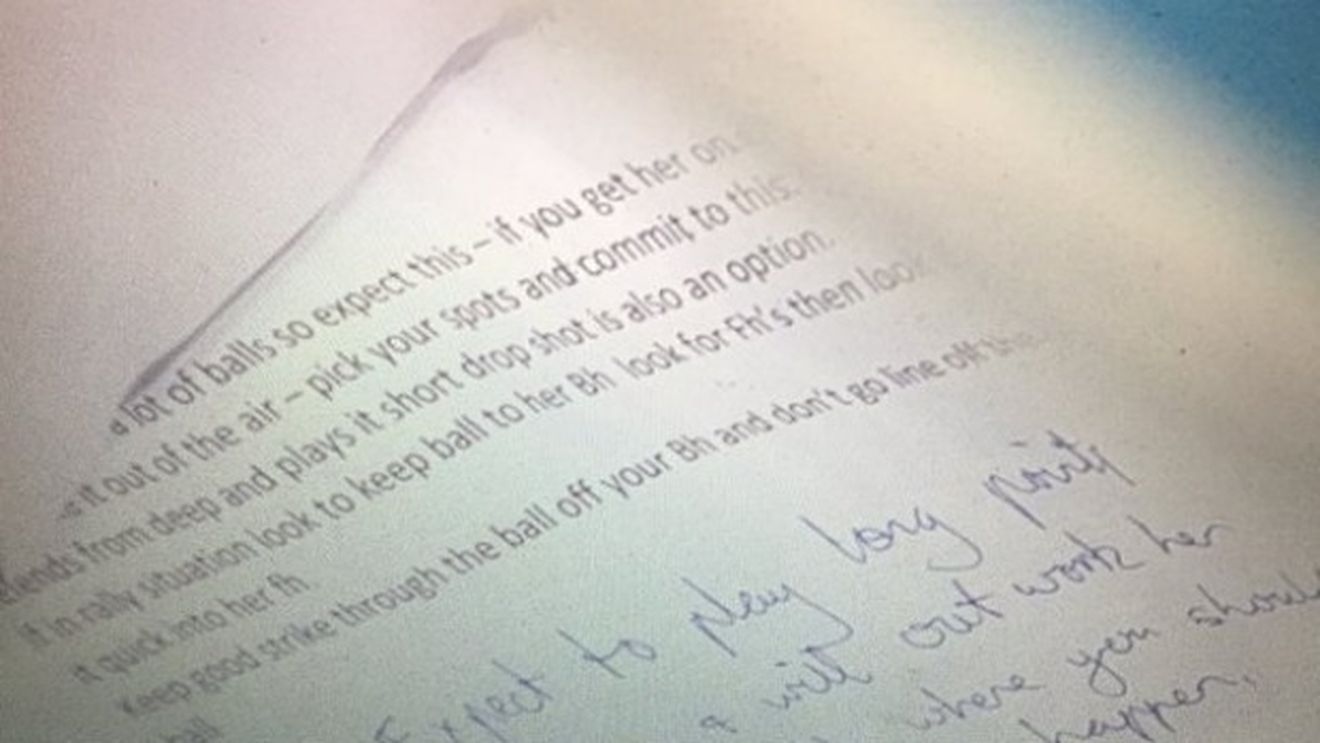 a lot of balls so expect this – if you get her on
it out of the air – pick your spots and commit to this.
from deep and plays it short drop shot is also an option.
If in rally situation look to keep ball to her Bh look for Fh's then look
it quick into her fh
Keep good strike through the ball off your Bh and don't go line off the
ball
Expect to play long points
will out work her
where you should
happen.